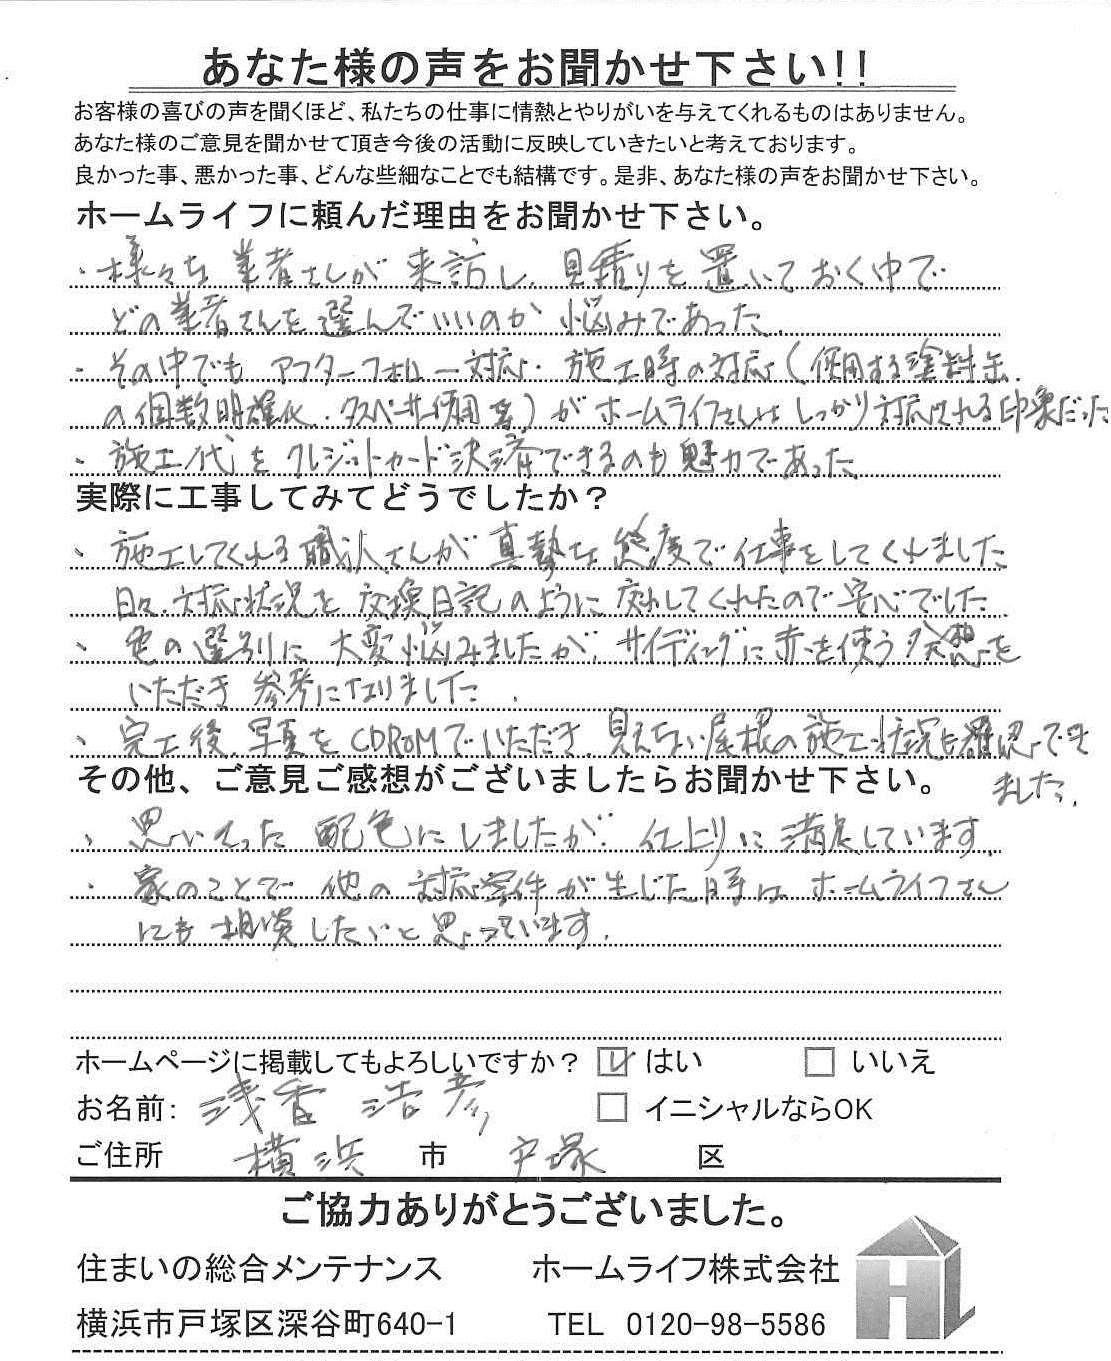 あなた様の声をお聞かせ下さい!!
お客様の喜びの声を聞くほど、私たちの仕事に情熱とやりがいを与えてくれるものはありません。
あなた様のご意見を聞かせて頂き今後の活動に反映していきたいと考えております。
良かった事、悪かった事、どんな些細なことでも結構です。是非、あなた様の声をお聞かせ下さい。
ホームライフに頼んだ理由をお聞かせ下さい。
・様々な業者さんが来訪し、見積りを置いておく中で
どの業者さんを選んでいいのか悩みであった。
・その中でもアフターフォロー対応・施工時の対応(使用する塗料缶
の個数明確化、タスペーサー使用等)がホームライフさんはしっかり対応される印象だった
・施工代をクレジットカード決済できるのも魅力であった
実際に工事してみてどうでしたか？
、施工してくれる職人さんが真摯な態度で仕事をしてくれました
日々、対応状況を交換日記のように交わしてくれたので安心でした
、色の選別に大変悩みましたが、サイディングに赤を使う発想を
いただき参考になりました。
、完工後、写真をCDROMでいただき、見えない屋根の施工状況も確認でき
ました。
その他、ご意見ご感想がございましたらお聞かせ下さい。
、思いきった配色にしましたが、仕上りに満足しています。
・家のことで他の対応案件が生じた時はホームライフさん
にも相談したいと思っています。
ホームページに掲載してもよろしいですか？ はい いいえ
お名前: 浅香 浩彦 イニシャルならOK
ご住所 横浜 市 戸塚 区
ご協力ありがとうございました。
住まいの総合メンテナンス ホームライフ株式会社
横浜市戸塚区深谷町640-1 TEL 0120-98-5586
HL